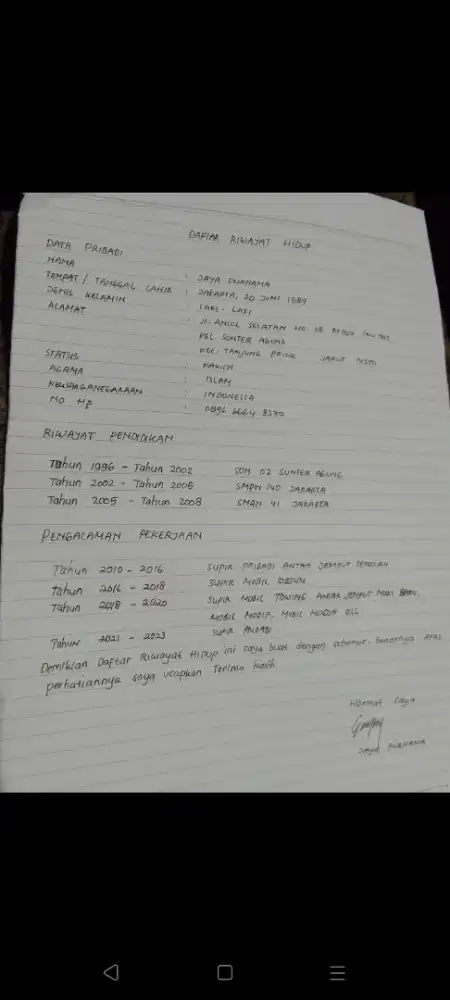 DAFTAR RIWAYAT HIDUP
DATA PRIBADI
NAMA : JAYA PURNAMA
TEMPAT / TANGGAL LAHIR : JAKARTA, 20 JUNI 1989
JENIS KELAMIN : LAKI - LAKI
ALAMAT : Jl. ANCOL SELATAN NO. 
KEL SUNTER AGUNG
KEC. TANJUNG PRIOK JAKUT
STATUS : KAWIN
AGAMA : ISLAM
KEWARGANEGARAAN : INDONESIA
NO HP : 0896 6664 8370
RIWAYAT PENDIDIKAN
Tahun 1996 - Tahun 2002 SDN 02 SUNTER AGUNG
Tahun 2002 - Tahun 2005 SMPN 140 JAKARTA
Tahun 2005 - Tahun 2008 SMAN 41 JAKARTA
PENGALAMAN PEKERJAAN
Tahun 2010 - 2016 SUPIR PRIBADI ANTAR JEMPUT SEKOLAH
Tahun 2016 - 2018 SUPIR MOBIL
Tahun 2018 - 2020 SUPIR MOBIL TOWING. ANTAR JEMPUT MOBIL BARU.
MOBIL MODIF. MOBIL MOGOK DLL
Tahun 2021 - 2023 SUPIR
Demikian Daftar Riwayat Hidup ini saya buat dengan sebenar-benarnya Atas
perhatiannya saya ucapkan Terima kasih
Hormat Saya
Jaya PURNAMA